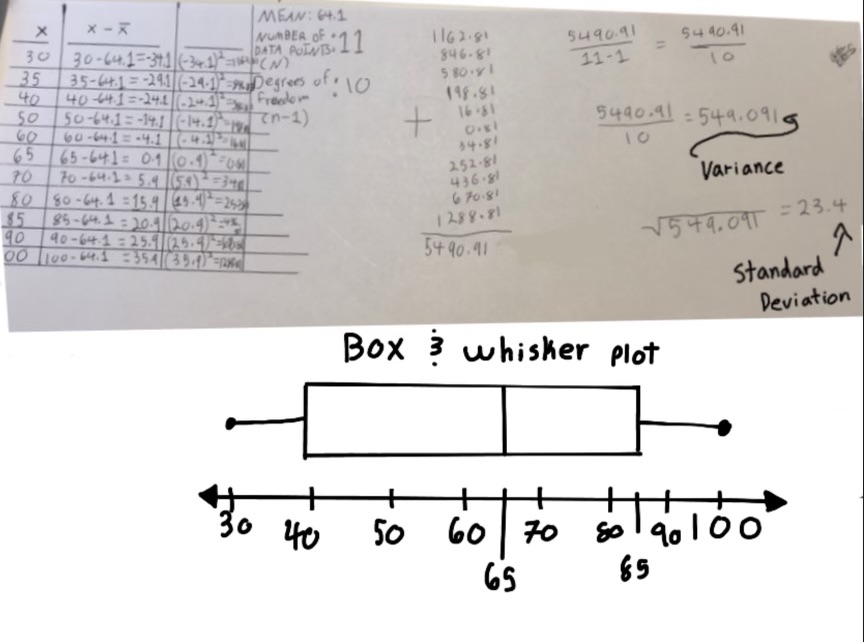 x x - x̄
MEAN: 64.1
NUMBER OF DATA POINTS: 11
(N)
Degrees of freedom : 10
(n-1)
30 30-64.1 = -34.1 (-34.1)²=
35 35-64.1 = -29.1 (-29.1)²=
40 40-64.1 = -24.1 (-24.1)²=
50 50-64.1 = -14.1 (-14.1)²=
60 60-64.1 = -4.1
65 65-64.1 = 0.9 (0.9)²=
70 70-64.1 = 5.9 (5.9)²=
80 80-64.1 = 15.9 (15.9)²=
85 85-64.1 = 20.9 (20.9)²=
90 90-64.1 = 25.9 (25.9)²=
00 100-64.1 = 35.9 (35.9)²=
1162.81
846.81
580.81
198.81
16.81
0.81
34.81
252.81
436.81
670.81
+ 1288.81
5490.91
5490.91 / 11-1 = 5490.91 / 10
5490.91 / 10 = 549.091
Variance
√549.091 = 23.4
Standard
Deviation
Box & whisker plot
30 40 50 60 70 80 90 100
65 85